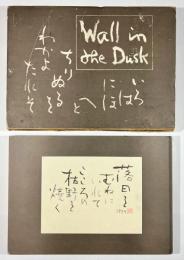 Wall in
the Dusk
いろ
はに
にほ
へと
ちりぬるを
わかよ
たれそ
落日を
むねに
いれて
こころの
枯野を
焼く